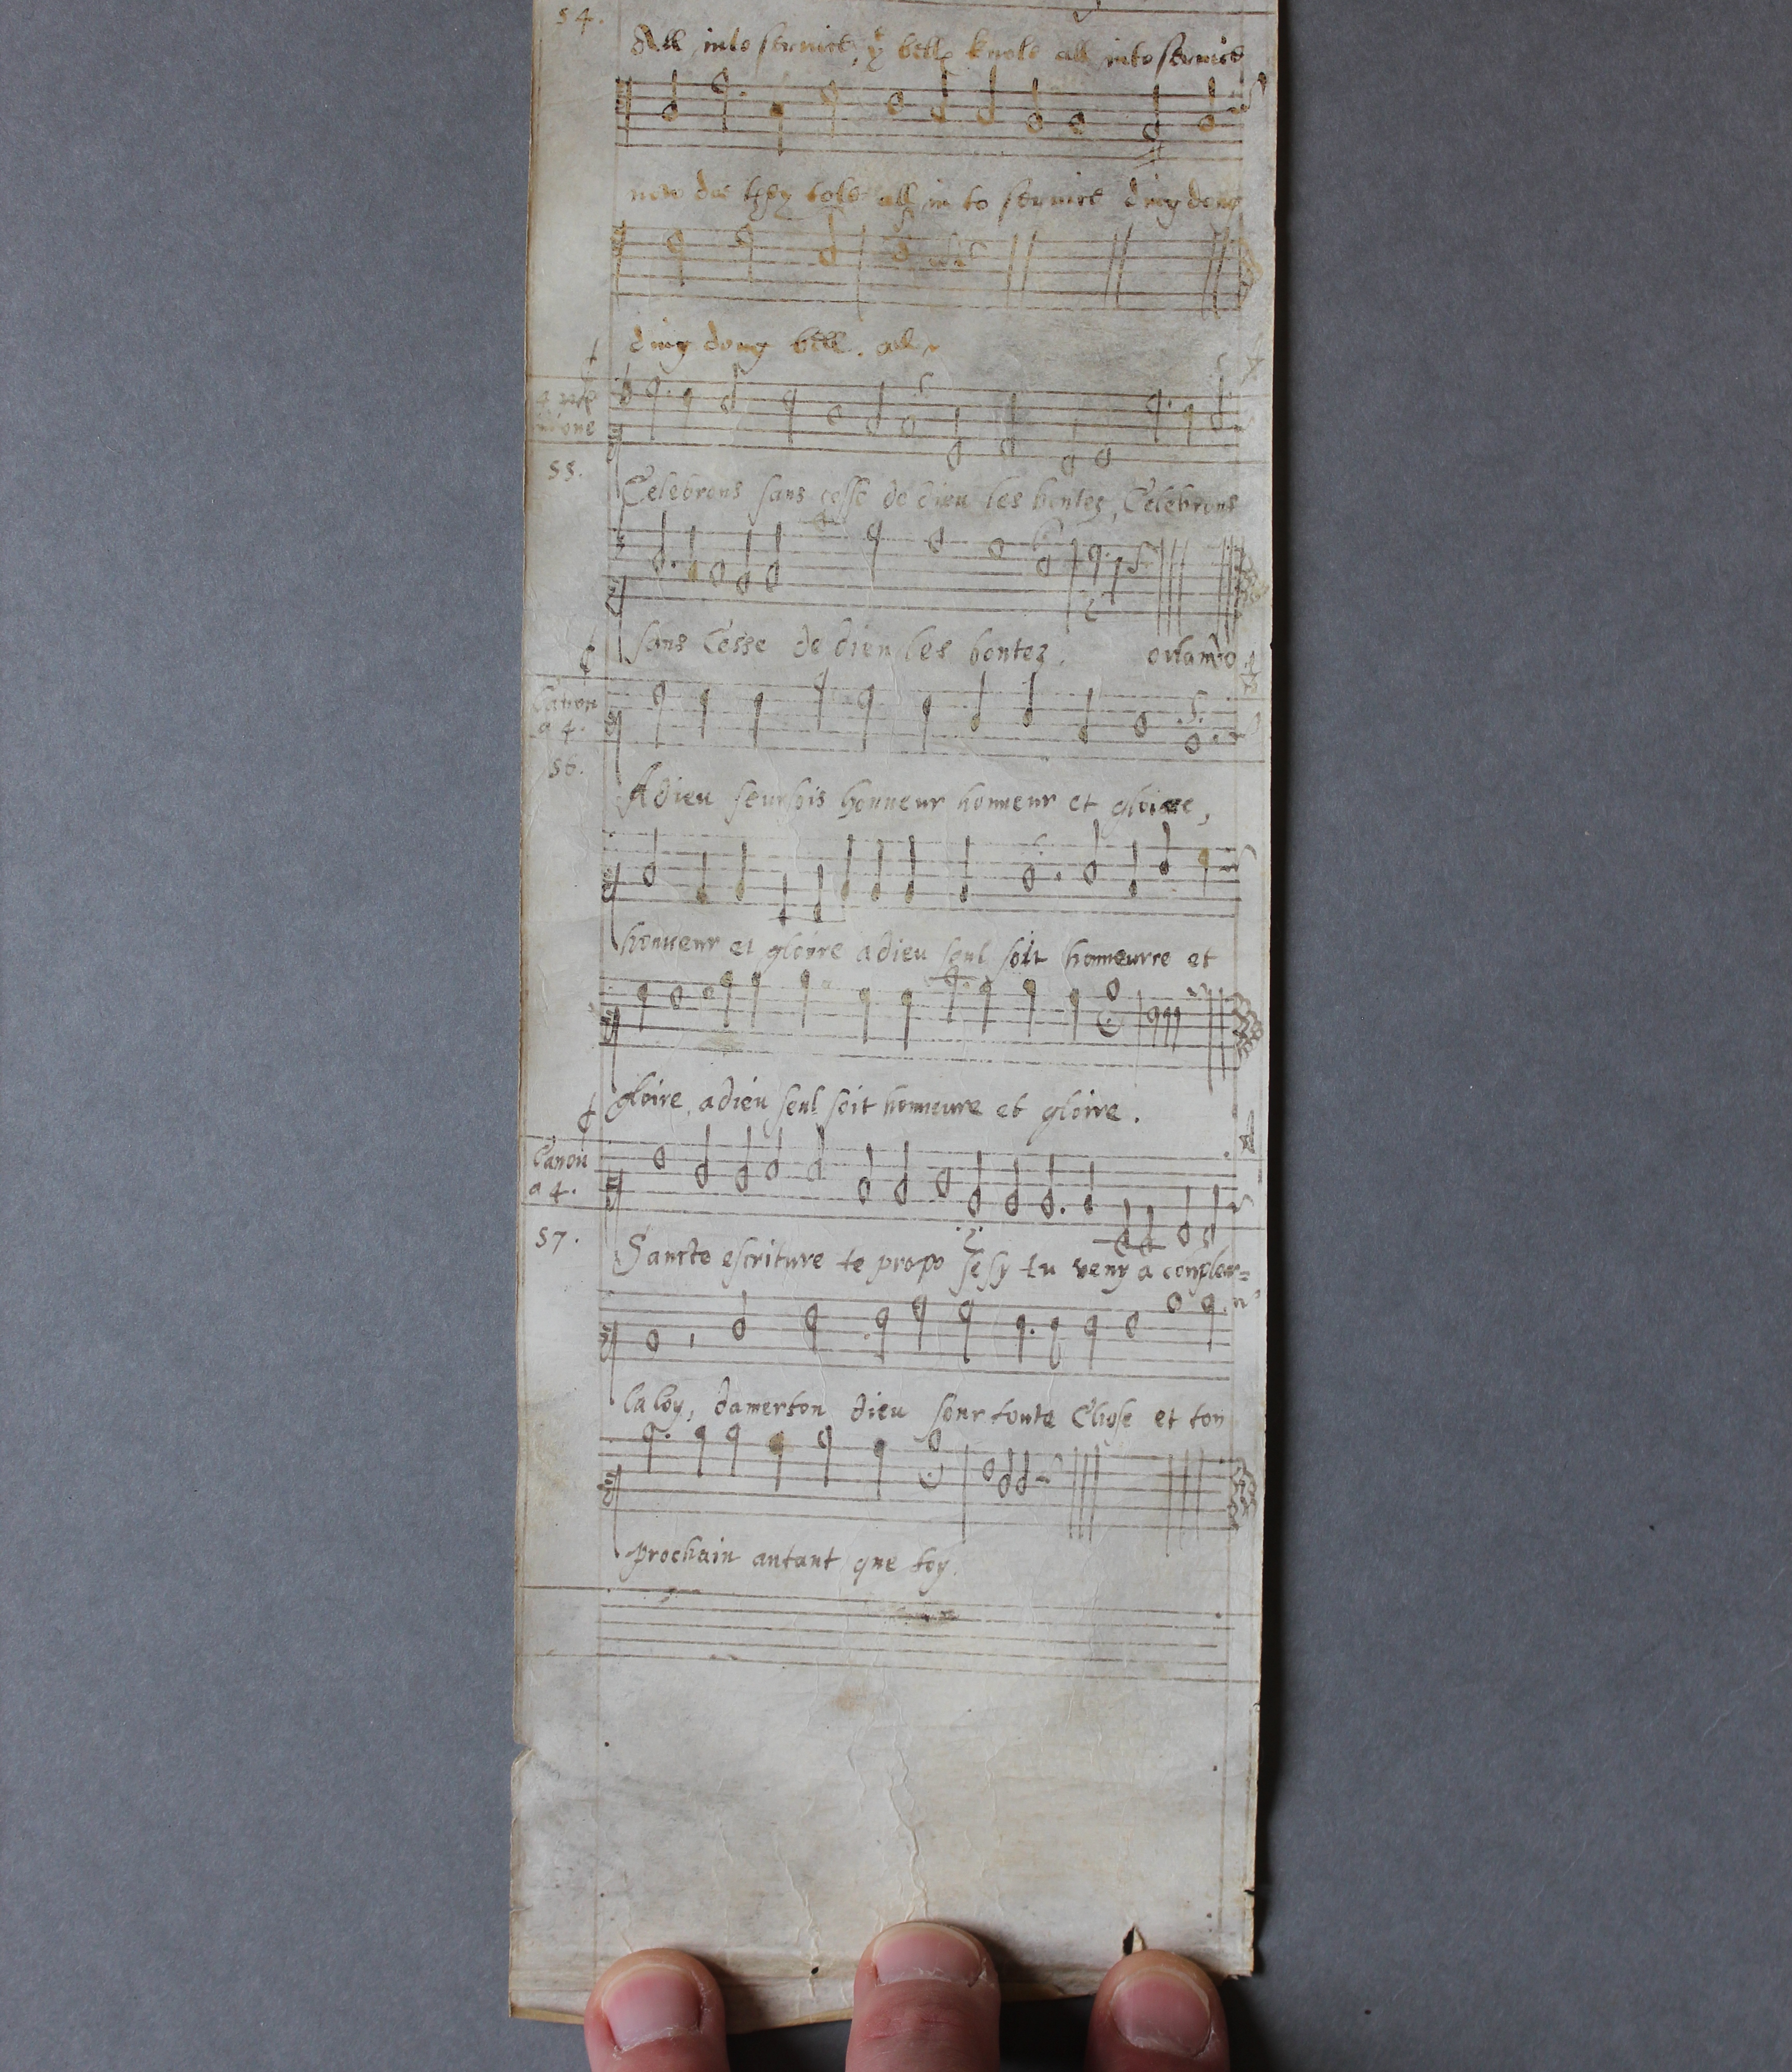 54.
All into seruice, yᵉ bells knole all into seruice
now doe they tole all in to seruice ding dong
ding dong bell. all
55.
Celebrons sans cesse de dieu les bontez, Celebrons
sans Cesse de dieu les bontez. orlando
Canon
a 4.
56.
Adieu seul sois honneur honneur et gloire,
honneur et gloire adieu seul soit honneurre et
gloire, adieu seul soit honneure et gloire.
Canon
a 4.
57.
Sancte escriture te propo se sy tu veny a conpler=
la loy, damerton dieu sour toute Chose et ton
prochain autant que toy.